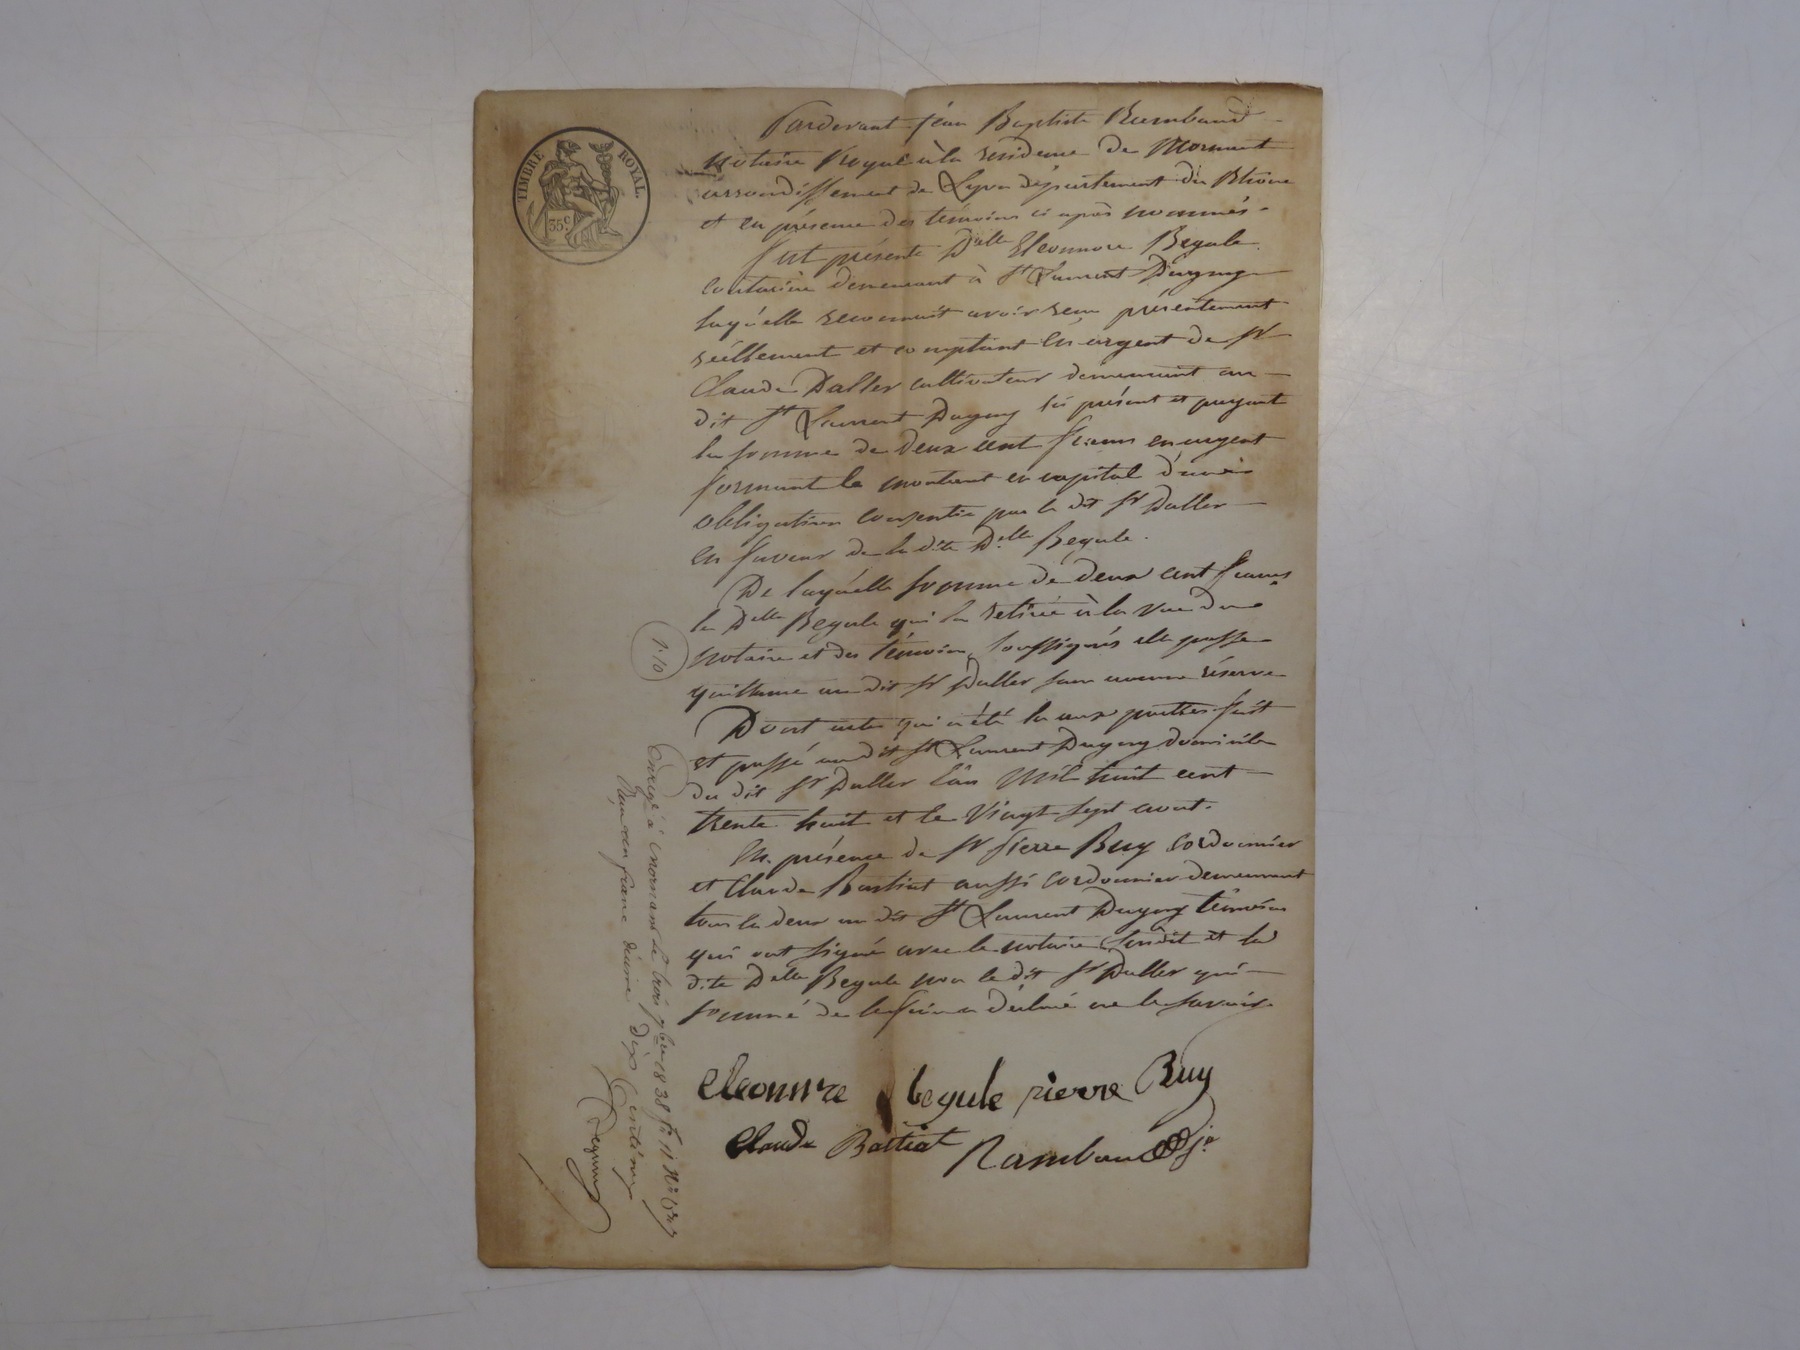 TIMBRE ROYAL.
35 c.
Pardevant Jéan Baptiste Rambaud
Notaire Royal à la residence de Mornant
arrondissement de Lyon département du Rhône
et en présence des témoins ci après nommés.
fut présente Delle Eleonnore Begule
couturière demeurant à St Laurent Dagny
laquelle reconnait avoir recu présentement
réellement et comptant en argent de Sr
Claude Daller cultivateur demeurant au
dit St Laurent Dagny ici présent et payant
la somme de deux cent francs en argent
formant le montant en capital d'une
obligation consentie par le dit Sr Daller
en faveur de la dite Delle Begule.
De laquelle somme de deux cent francs
la Delle Begule qui la retirée à la vue du
notaire et des témoins soussignés elle passe
quittance au dit Sr Daller sans aucune réserve
Dont acte qui a été lu aux parties fait
et passé au dit St Laurent Dagny domicile
du dit Sr Daller l'an Mil huit cent
trente huit et le Vingt sept aout.
En présence de Sr Pierre Buy cordonnier
et Claude Bastiat aussi cordonnier demeurant
tous les deux au dit St Laurent Dagny témoins
qui ont signé avec le notaire susdit et la
dite Delle Begule non le dit Sr Daller qui
sommé de le faire a déclaré ne le savoir.
Eleonnre begule pierre Buy
Claude Bastiat Rambaud
1.10
Enregé à mornant le trois 7bre 1838 fo 11
Reçu un franc décime dix centimes